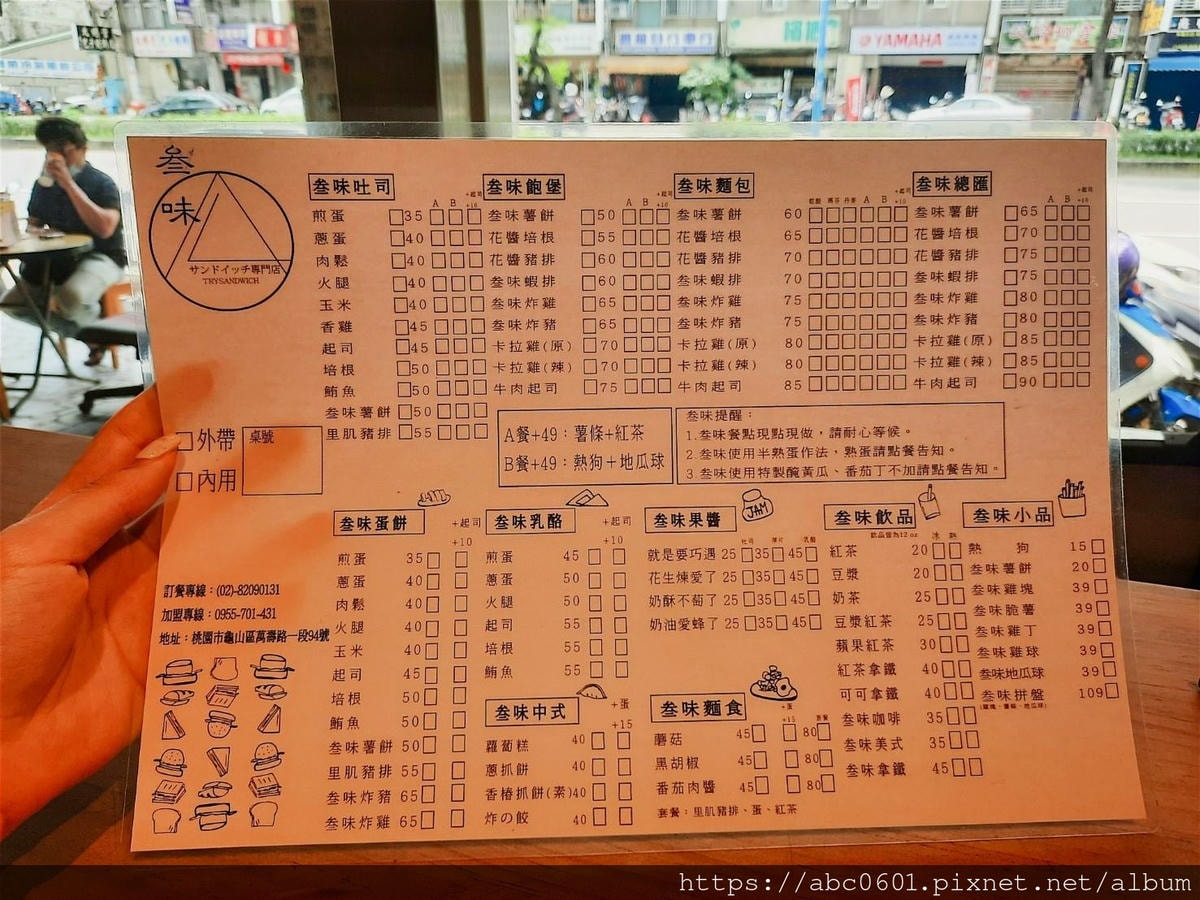 YAMAHA
叁
味
サンドイッチ専門店
TRYSANDWICH
外帶
內用
桌號
訂餐專線：(02)-82090131
加盟專線：0955-701-431
地址：桃園市龜山區萬壽路一段94號
叁味吐司
A B +起司+10
煎蛋 35
蔥蛋 40
肉鬆 40
火腿 40
玉米 40
香雞 45
起司 45
培根 50
鮪魚 50
叁味薯餅 50
里肌豬排 55
叁味飽堡
A B +起司+10
叁味薯餅 50
花醬培根 55
花醬豬排 60
叁味蝦排 60
叁味炸雞 65
叁味炸豬 65
卡拉雞(原) 70
卡拉雞(辣) 70
牛肉起司 75
叁味麵包
A B +起司+10
叁味薯餅 60
花醬培根 65
花醬豬排 70
叁味蝦排 70
叁味炸雞 75
叁味炸豬 75
卡拉雞(原) 80
卡拉雞(辣) 80
牛肉起司 85
叁味總匯
A B +起司+10
叁味薯餅 65
花醬培根 70
花醬豬排 75
叁味蝦排 75
叁味炸雞 80
叁味炸豬 80
卡拉雞(原) 85
卡拉雞(辣) 85
牛肉起司 90
A餐+49：薯條+紅茶
B餐+49：熱狗＋地瓜球
叁味提醒：
1.叁味餐點現點現做，請耐心等候。
2.叁味使用半熟蛋作法，熟蛋請點餐告知。
3.叁味使用特製醃黃瓜、番茄丁不加請點餐告知。
叁味蛋餅
+起司
+10
煎蛋 35
蔥蛋 40
肉鬆 40
火腿 40
玉米 40
起司 45
培根 50
鮪魚 50
叁味薯餅 50
里肌豬排 55
叁味炸豬 65
叁味炸雞 65
叁味乳酪
+起司
+10
煎蛋 45
蔥蛋 50
火腿 50
起司 55
培根 55
鮪魚 55
叁味中式
+蛋
+15
蘿蔔糕 40
蔥抓餅 40
香椿抓餅(素) 40
炸の餃 40
叁味果醬
JAM
吐司 薄片 乳酪
就是要巧遇 25 35 45
花生煉愛了 25 35 45
奶酥不萄了 25 35 45
奶油愛蜂了 25 35 45
叁味麵食
+蛋
+15 套餐
蘑菇 45 80
黑胡椒 45 80
番茄肉醬 45 80
套餐：里肌豬排、蛋、紅茶
叁味飲品
飲品皆為12 oz 冰 熱
紅茶 20
豆漿 20
奶茶 25
豆漿紅茶 25
蘋果紅茶 30
紅茶拿鐵 40
可可拿鐵 40
叁味咖啡 35
叁味美式 35
叁味拿鐵 45
叁味小品
熱狗 15
叁味薯餅 20
叁味雞塊 39
叁味脆薯 39
叁味雞丁 39
叁味雞球 39
叁味地瓜球 39
叁味拼盤 109
(雞塊、薯條、地瓜球)
https://abc0601.pixnet.net/album